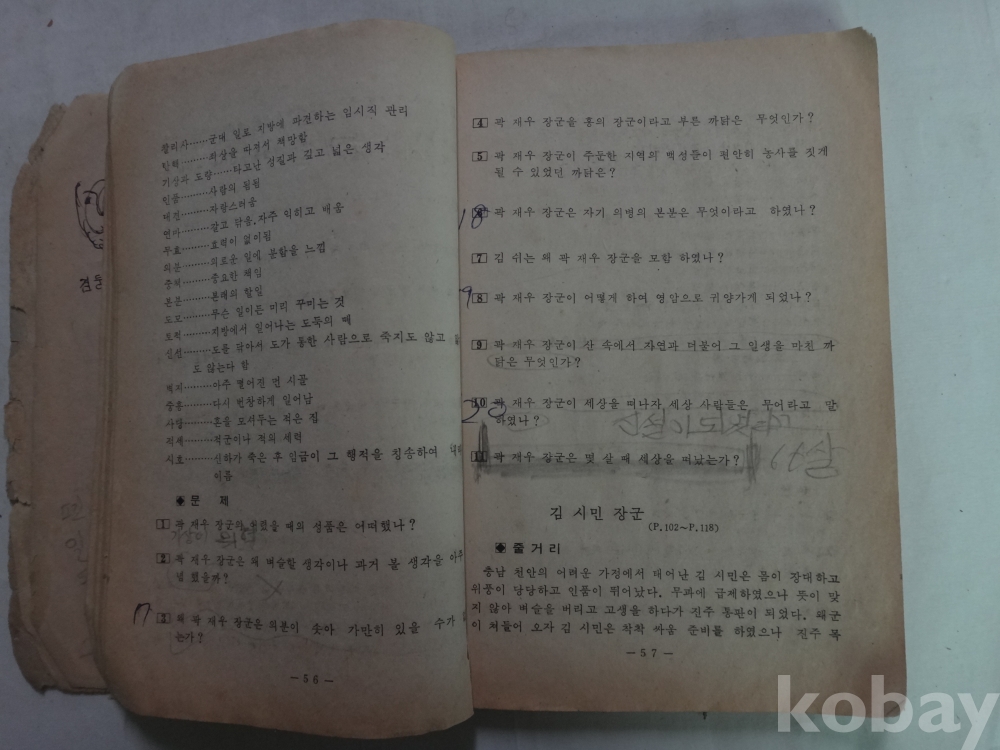 찰리사……군대 일로 지방에 파견하는 임시직 관리
힌책………죄상을 따져서 책망함
기상과 도량……타고난 성질과 깊고 넓은 생각
인품………사람의 됨됨
대견………자랑스러움
연마………갈고 닦음. 자주 익히고 배움
무효………효력이 없이됨
의분………의로운 일에 분함을 느낌
중책………중요한 책임
본분………본래의 할일
도모………무슨 일이든 미리 꾸미는 것
토적………지방에서 일어나는 도둑의 떼
신선………도를 닦아서 도가 통한 사람으로 죽지도 않고
도 않는다 함
벽지………아주 떨어진 먼 시골
중흥………다시 번창하게 일어남
사당………혼을 모셔두는 적은 집
적세………적군이나 적의 세력
시호………신하가 죽은 후 임금이 그 행적을 칭송하여
이름
문 제
1 곽 재우 장군의 어렸을 때의 성품은 어떠했나?
기상이
2 곽 재우 장군은 왜 벼슬할 생각이나 과거 볼 생각을
했을까?
17
3 왜 곽 재우 장군은 의분이 솟아 가만히 있을 수가
는가?
— 56 —
4 곽 재우 장군을 홍의 장군이라고 부른 까닭은 무엇인가?
5 곽 재우 장군이 주둔한 지역의 백성들이 편안히 농사를 짓게
될 수 있었던 까닭은?
18
곽 재우 장군은 자기 의병의 본분은 무엇이라고 하였나?
7 김 쉬는 왜 곽 재우 장군을 모함 하였나?
9
8 곽 재우 장군이 어떻게 하여 영암으로 귀양가게 되었나?
9 곽 재우 장군이 산 속에서 자연과 더불어 그 일생을 마친 까
닭은 무엇인가?
20
10 곽 재우 장군이 세상을 떠나자 세상 사람들은 무어라고 말
하였나?
11 곽 재우 장군은 몇 살 때 세상을 떠났는가?
김 시민 장군
(P.102~P.118)
줄거리
충남 천안의 어려운 가정에서 태어난 김 시민은 몸이 장대하고
위풍이 당당하고 인품이 뛰어났다. 무과에 급제하였으나 뜻이 맞
지 않아 벼슬을 버리고 고생을 하다가 진주 통판이 되었다. 왜군
이 쳐들어 오자 김 시민은 착착 싸움 준비를 하였으나 진주 목
— 57 —
kobay